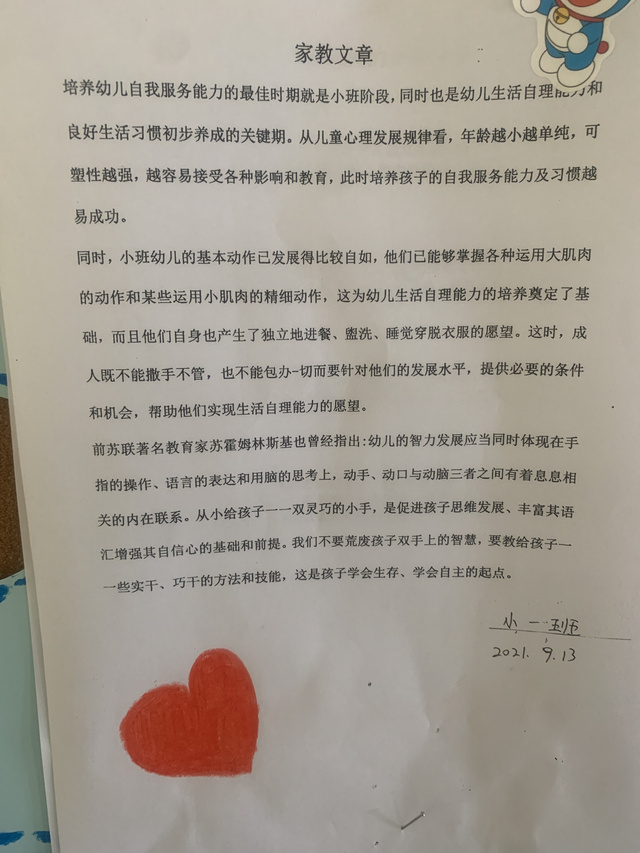 家教文章
培养幼儿自我服务能力的最佳时期就是小班阶段，同时也是幼儿生活自理能力和
良好生活习惯初步养成的关键期。从儿童心理发展规律看，年龄越小越单纯，可
塑性越强，越容易接受各种影响和教育，此时培养孩子的自我服务能力及习惯越
易成功。
同时，小班幼儿的基本动作已发展得比较自如，他们已能够掌握各种运用大肌肉
的动作和某些运用小肌肉的精细动作，这为幼儿生活自理能力的培养奠定了基
础，而且他们自身也产生了独立地进餐、盥洗、睡觉穿脱衣服的愿望。这时，成
人既不能撒手不管，也不能包办-切而要针对他们的发展水平，提供必要的条件
和机会，帮助他们实现生活自理能力的愿望。
前苏联著名教育家苏霍姆林斯基也曾经指出:幼儿的智力发展应当同时体现在手
指的操作、语言的表达和用脑的思考上，动手、动口与动脑三者之间有着息息相
关的内在联系。从小给孩子一一双灵巧的小手，是促进孩子思维发展、丰富其语
汇增强其自信心的基础和前提。我们不要荒废孩子双手上的智慧，要教给孩子一
一些实干、巧干的方法和技能，这是孩子学会生存、学会自主的起点。
小一班
2021. 9.13